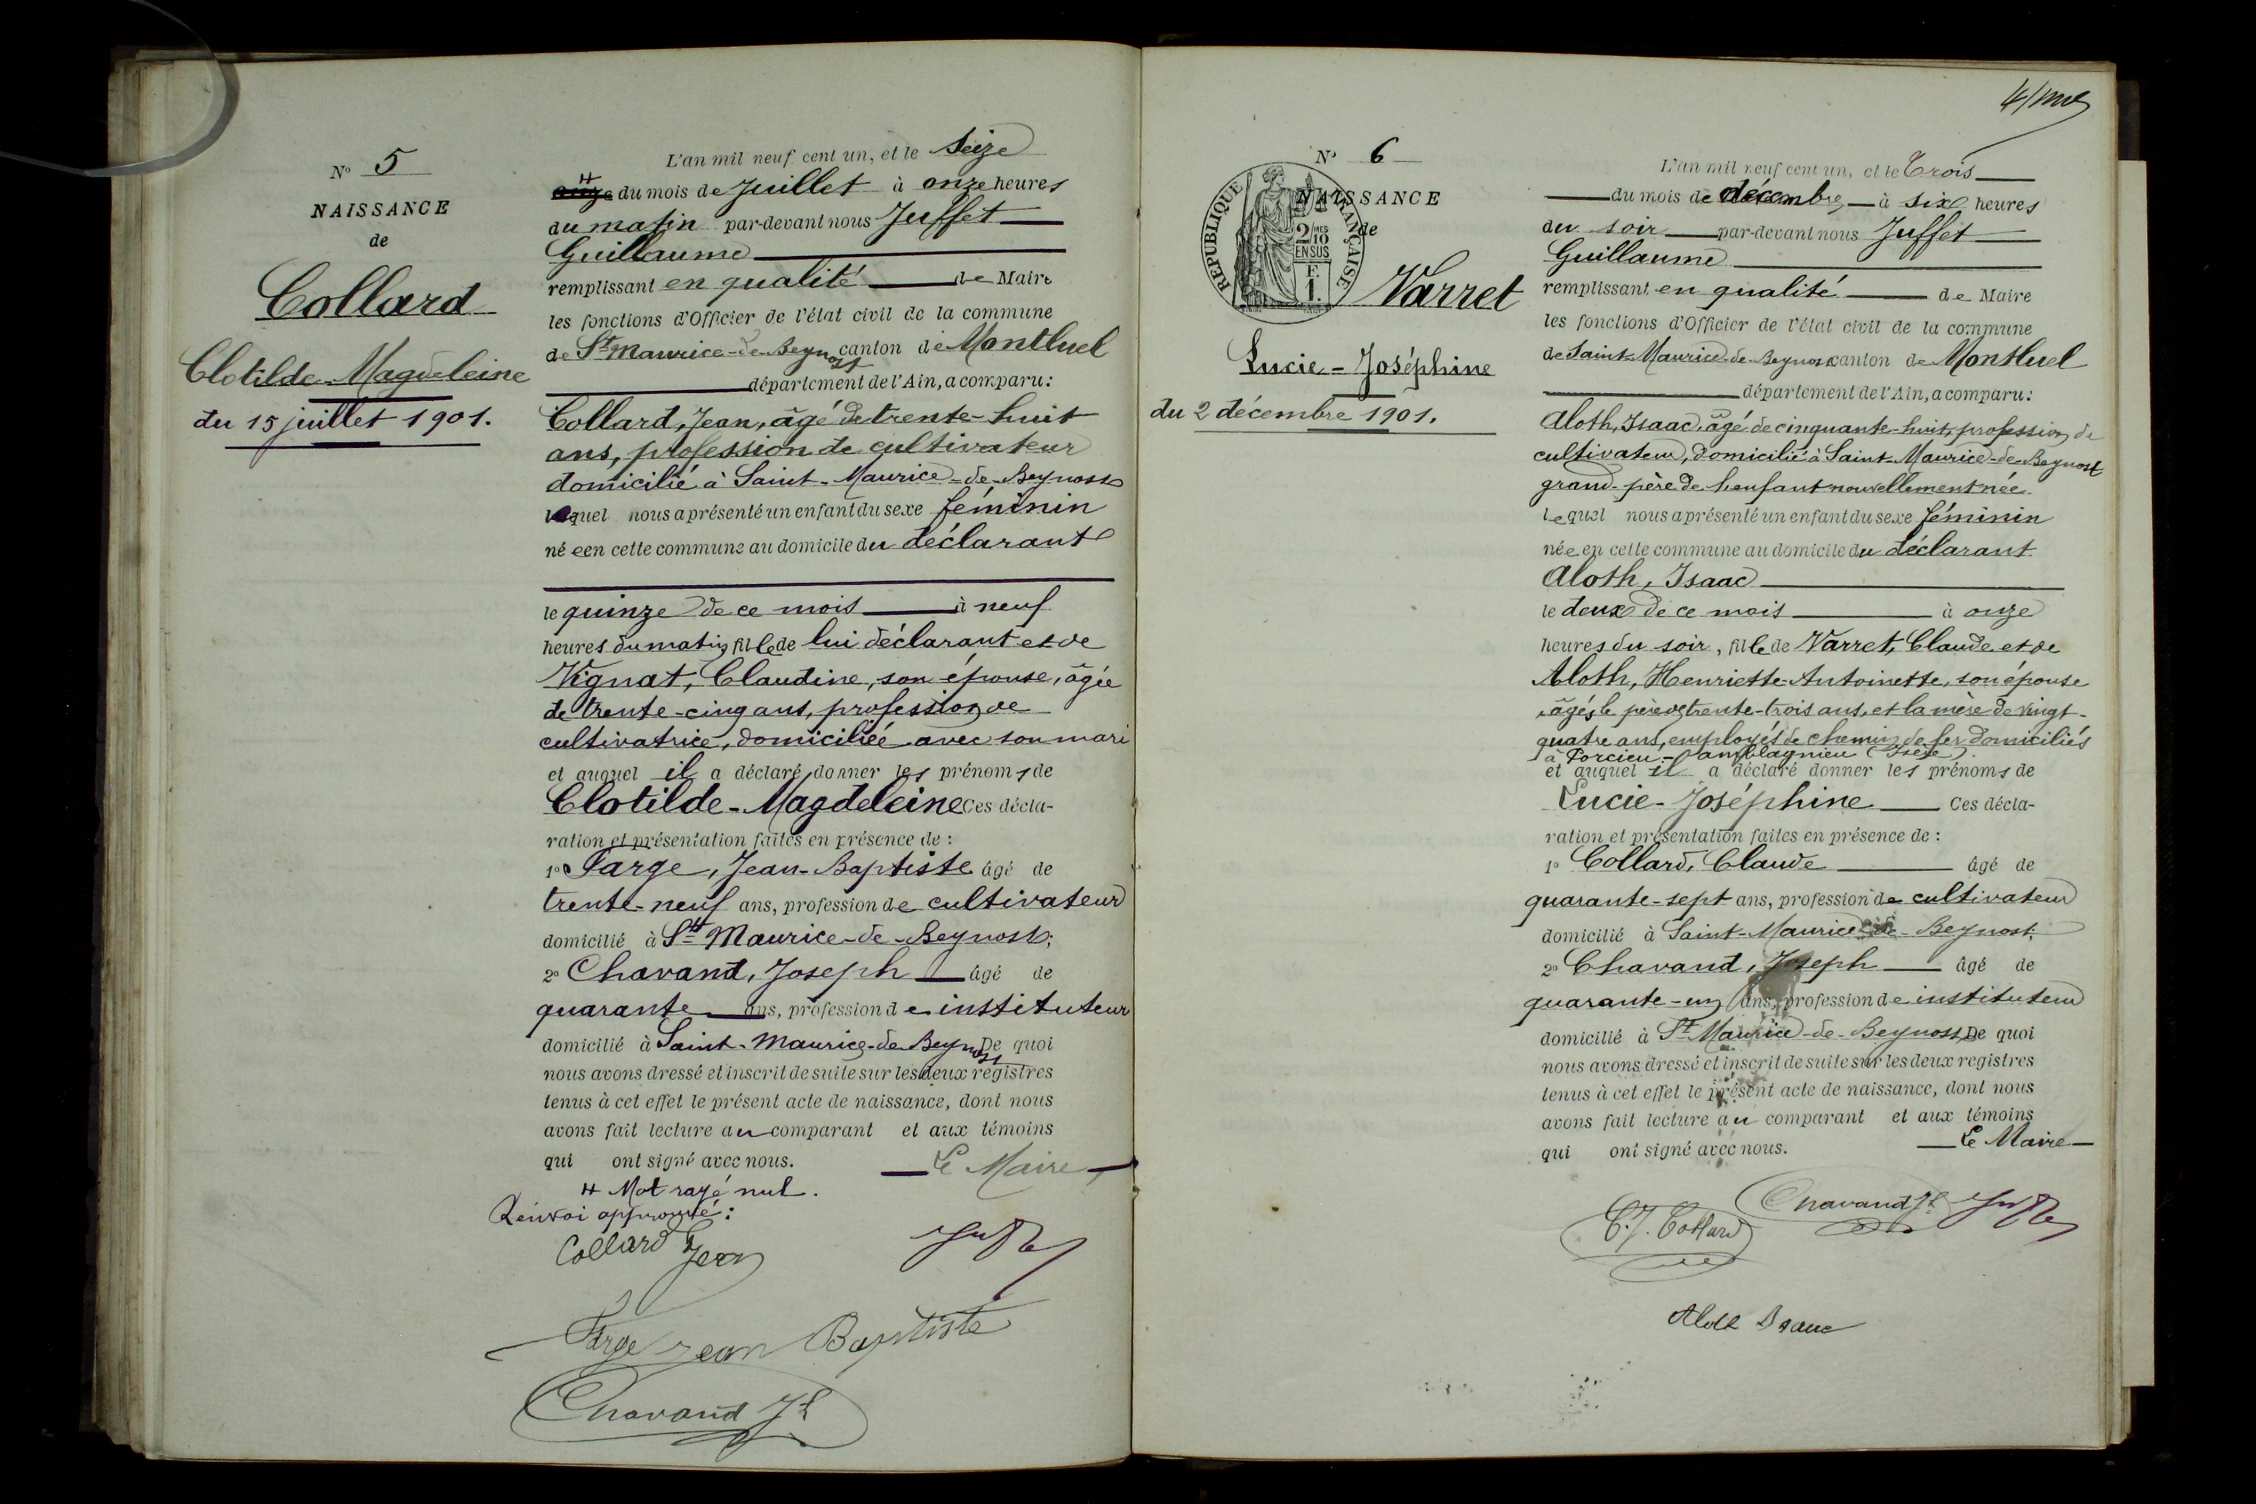 N° 5
NAISSANCE
de
Collard
Clotilde-Magdeleine
du 15 juillet 1901.
L'an mil neuf cent un, et le Seize
# onze du mois de Juillet à onze heures
du matin par-devant nous Juffet
Guillaume
remplissant en qualité de Maire
les fonctions d'Officier de l'état civil de la commune
de St Maurice-de-Beynost canton de Montluel
département de l'Ain, a comparu:
Collard, Jean, âgé de trente-huit
ans, profession de cultivateur
domicilié à Saint-Maurice-de-Beynost
lequel nous a présenté un enfant du sexe féminin
né e en cette commune au domicile du déclarant
le quinze de ce mois à neuf
heures du matin fille de lui déclarant et de
Vignat, Claudine, son épouse, âgée
de trente-cinq ans, profession de
cultivatrice, domiciliée avec son mari
et auquel il a déclaré donner les prénoms de
Clotilde-Magdeleine Ces décla-
ration et présentation faites en présence de :
1° Farge, Jean-Baptiste âgé de
trente-neuf ans, profession de cultivateur
domicilié à St Maurice-de-Beynost;
2° Chavand, Joseph âgé de
quarante ans, profession de instituteur
domicilié à Saint-Maurice-de-Beynost De quoi
nous avons dressé et inscrit de suite sur les deux registres
tenus à cet effet le présent acte de naissance, dont nous
avons fait lecture au comparant et aux témoins
qui ont signé avec nous. Le Maire
# Mot rayé nul.
Renvoi approuvé :
Collard Jean
Farge Jean Baptiste
Chavand Jh
4/
N° 6
NAISSANCE
de
REPUBLIQUE FRANÇAISE
2/10 MES
EN SUS
F.
1.
Varret
Lucie-Joséphine
du 2 décembre 1901.
L'an mil neuf cent un, et le Trois
du mois de décembre à six heures
du soir par-devant nous Juffet
Guillaume
remplissant en qualité de Maire
les fonctions d'Officier de l'état civil de la commune
de Saint-Maurice-de-Beynost canton de Montluel
département de l'Ain, a comparu:
Aloth, Isaac, âgé de cinquante-huit, profession de
cultivateur, domicilié à Saint-Maurice-de-Beynost
grand-père de l'enfant nouvellement née
lequel nous a présenté un enfant du sexe féminin
née en cette commune au domicile du déclarant
Aloth, Isaac
le deux de ce mois à onze
heures du soir, fille de Varret, Claude et de
Aloth, Henriette-Antoinette, son épouse
âgés le père de trente-trois ans, et la mère de vingt-
quatre ans, employés de chemin de fer domiciliés
à Porcieu-Amblagnieu (Isère)
et auquel il a déclaré donner les prénoms de
Lucie-Joséphine Ces décla-
ration et présentation faites en présence de :
1° Collard, Claude âgé de
quarante-sept ans, profession de cultivateur
domicilié à Saint-Maurice-de-Beynost;
2° Chavand, Joseph âgé de
quarante-un ans, profession de instituteur
domicilié à St Maurice-de-Beynost De quoi
nous avons dressé et inscrit de suite sur les deux registres
tenus à cet effet le présent acte de naissance, dont nous
avons fait lecture au comparant et aux témoins
qui ont signé avec nous. Le Maire
C. J. Collard Chavand Jh
Aloth Isaac